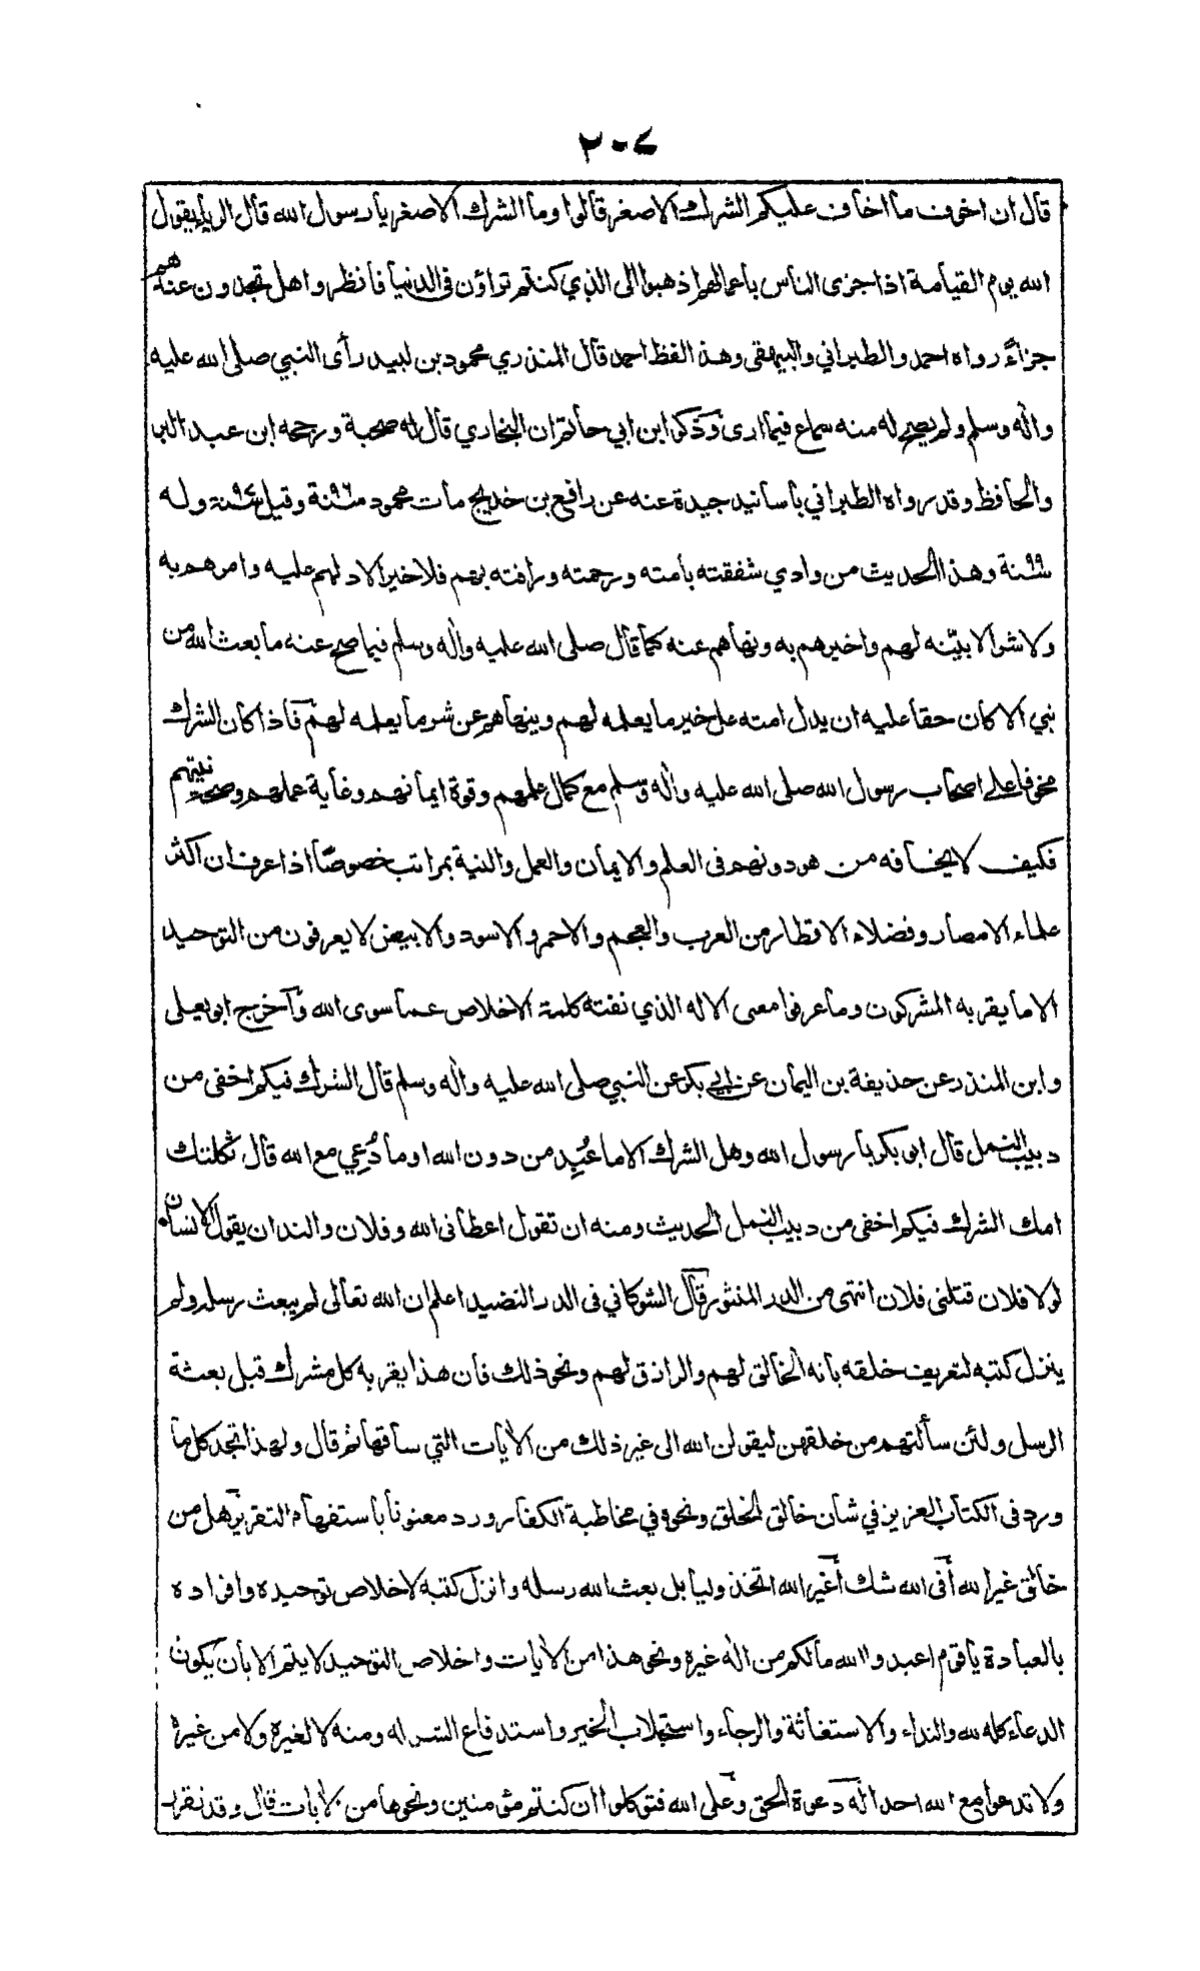 ٢٠٤
قال ان اخوف ما اخاف عليكم الشرك الاصغر قالوا وما الشرك الاصغر يا رسول الله قال الرياء يقول
الله يوم القيامة اذا جزى الناس باعمالهم اذهبوا الى الذي كنتم تراؤن فى الدنيا فانظروا هل تجدون عندهم
جزاءً رواه احمد والطبراني والبيهقى وهذا لفظ احمد قال المنذري محمود بن لبيد رأى النبي صلى الله عليه
واٰله وسلم ولم يصح له منه سماع فيما ارى وذكر ابن ابي حاتم ان البخاري قال له صحبة ورجحه ابن عبد البر
والحافظ وقد رواه الطبراني باسانيد جيدة عنه عن رافع بن خديج مات محمود سنة ٩٦ وقيل سنة ٩٤ وله
٩٩ سنة وهذا الحديث من وادي شفقته بأمته ورحمته ورافته بهم فلا خير الا دلهم عليه وامرهم به
ولا شر الا بيّنه لهم واخبرهم به ونهاهم عنه كما قال صلى الله عليه واٰله وسلم فيما صح عنه ما بعث الله من
نبي الا كان حقا عليه ان يدل امته على خير ما يعلمه لهم وينهاهم عن شر ما يعلمه لهم فاذا كان الشرك
مخوفا على اصحاب رسول الله صلى الله عليه واٰله وسلم مع كمال علمهم وقوة ايمانهم وغاية عملهم وصحة نيتهم
فكيف لا يخافه من هو دونهم فى العلم والايمان والعمل والنية بمراتب خصوصًا اذا عرف ان اكثر
علماء الامصار وفضلاء الاقطار من العرب والعجم والاحمر والاسود والابيض لا يعرفون من التوحيد
الا ما يقر به المشركون وما عرفوا معنى الاله الذي نفته كلمة الاخلاص عما سوى الله وآخرج ابو يعلى
وابن المنذر عن حذيفة بن اليمان عن ابي بكر عن النبي صلى الله عليه واٰله وسلم قال الشرك فيكم اخفى من
دبيب النمل قال ابو بكر يا رسول الله وهل الشرك الا ما عُبِد من دون الله او ما دُعي مع الله قال ثكلتك
امك الشرك فيكم اخفى من دبيب النمل الحديث ومنه ان تقول اعطانى الله وفلان والند ان يقول الانسان
لولا فلان قتلنى فلان انتهى من الدر المنثور قال الشوكاني فى الدر النضيد اعلم ان الله تعالى لم يبعث رسله ولم
ينزل كتبه لتعريف خلقه بانه الخالق لهم والرازق لهم ونحو ذلك فان هذا يقر به كل مشرك قبل بعثة
الرسل ولئن سألتهم من خلقهن ليقولن الله الى غير ذلك من الاٰيات التي ساقها ثم قال ولهذا تجد كل ما
ورد فى الكتاب العزيز في شان خالق الخلق ونحوه في مخاطبة الكفار ورد معنونا باستفهام التقرير هل من
خالق غير الله أفى الله شك أغير الله اتخذ وليا بل بعث الله رسله وانزل كتبه لاخلاص توحيده وافراده
بالعبادة يا قوم اعبدوا الله ما لكم من اٰله غيره ونحو هذا من الاٰيات واخلاص التوحيد لا يتم الا بان يكون
الدعاء كله لله والنداء والاستغاثة والرجاء واستجلاب الخير واستدفاع الشر له ومنه لا لغيره ولا من غيره
ولا تدعوا مع الله احدا له دعوة الحق وعلى الله فتوكلوا ان كنتم مؤمنين ونحوها من الاٰيات قال وقد تقرر